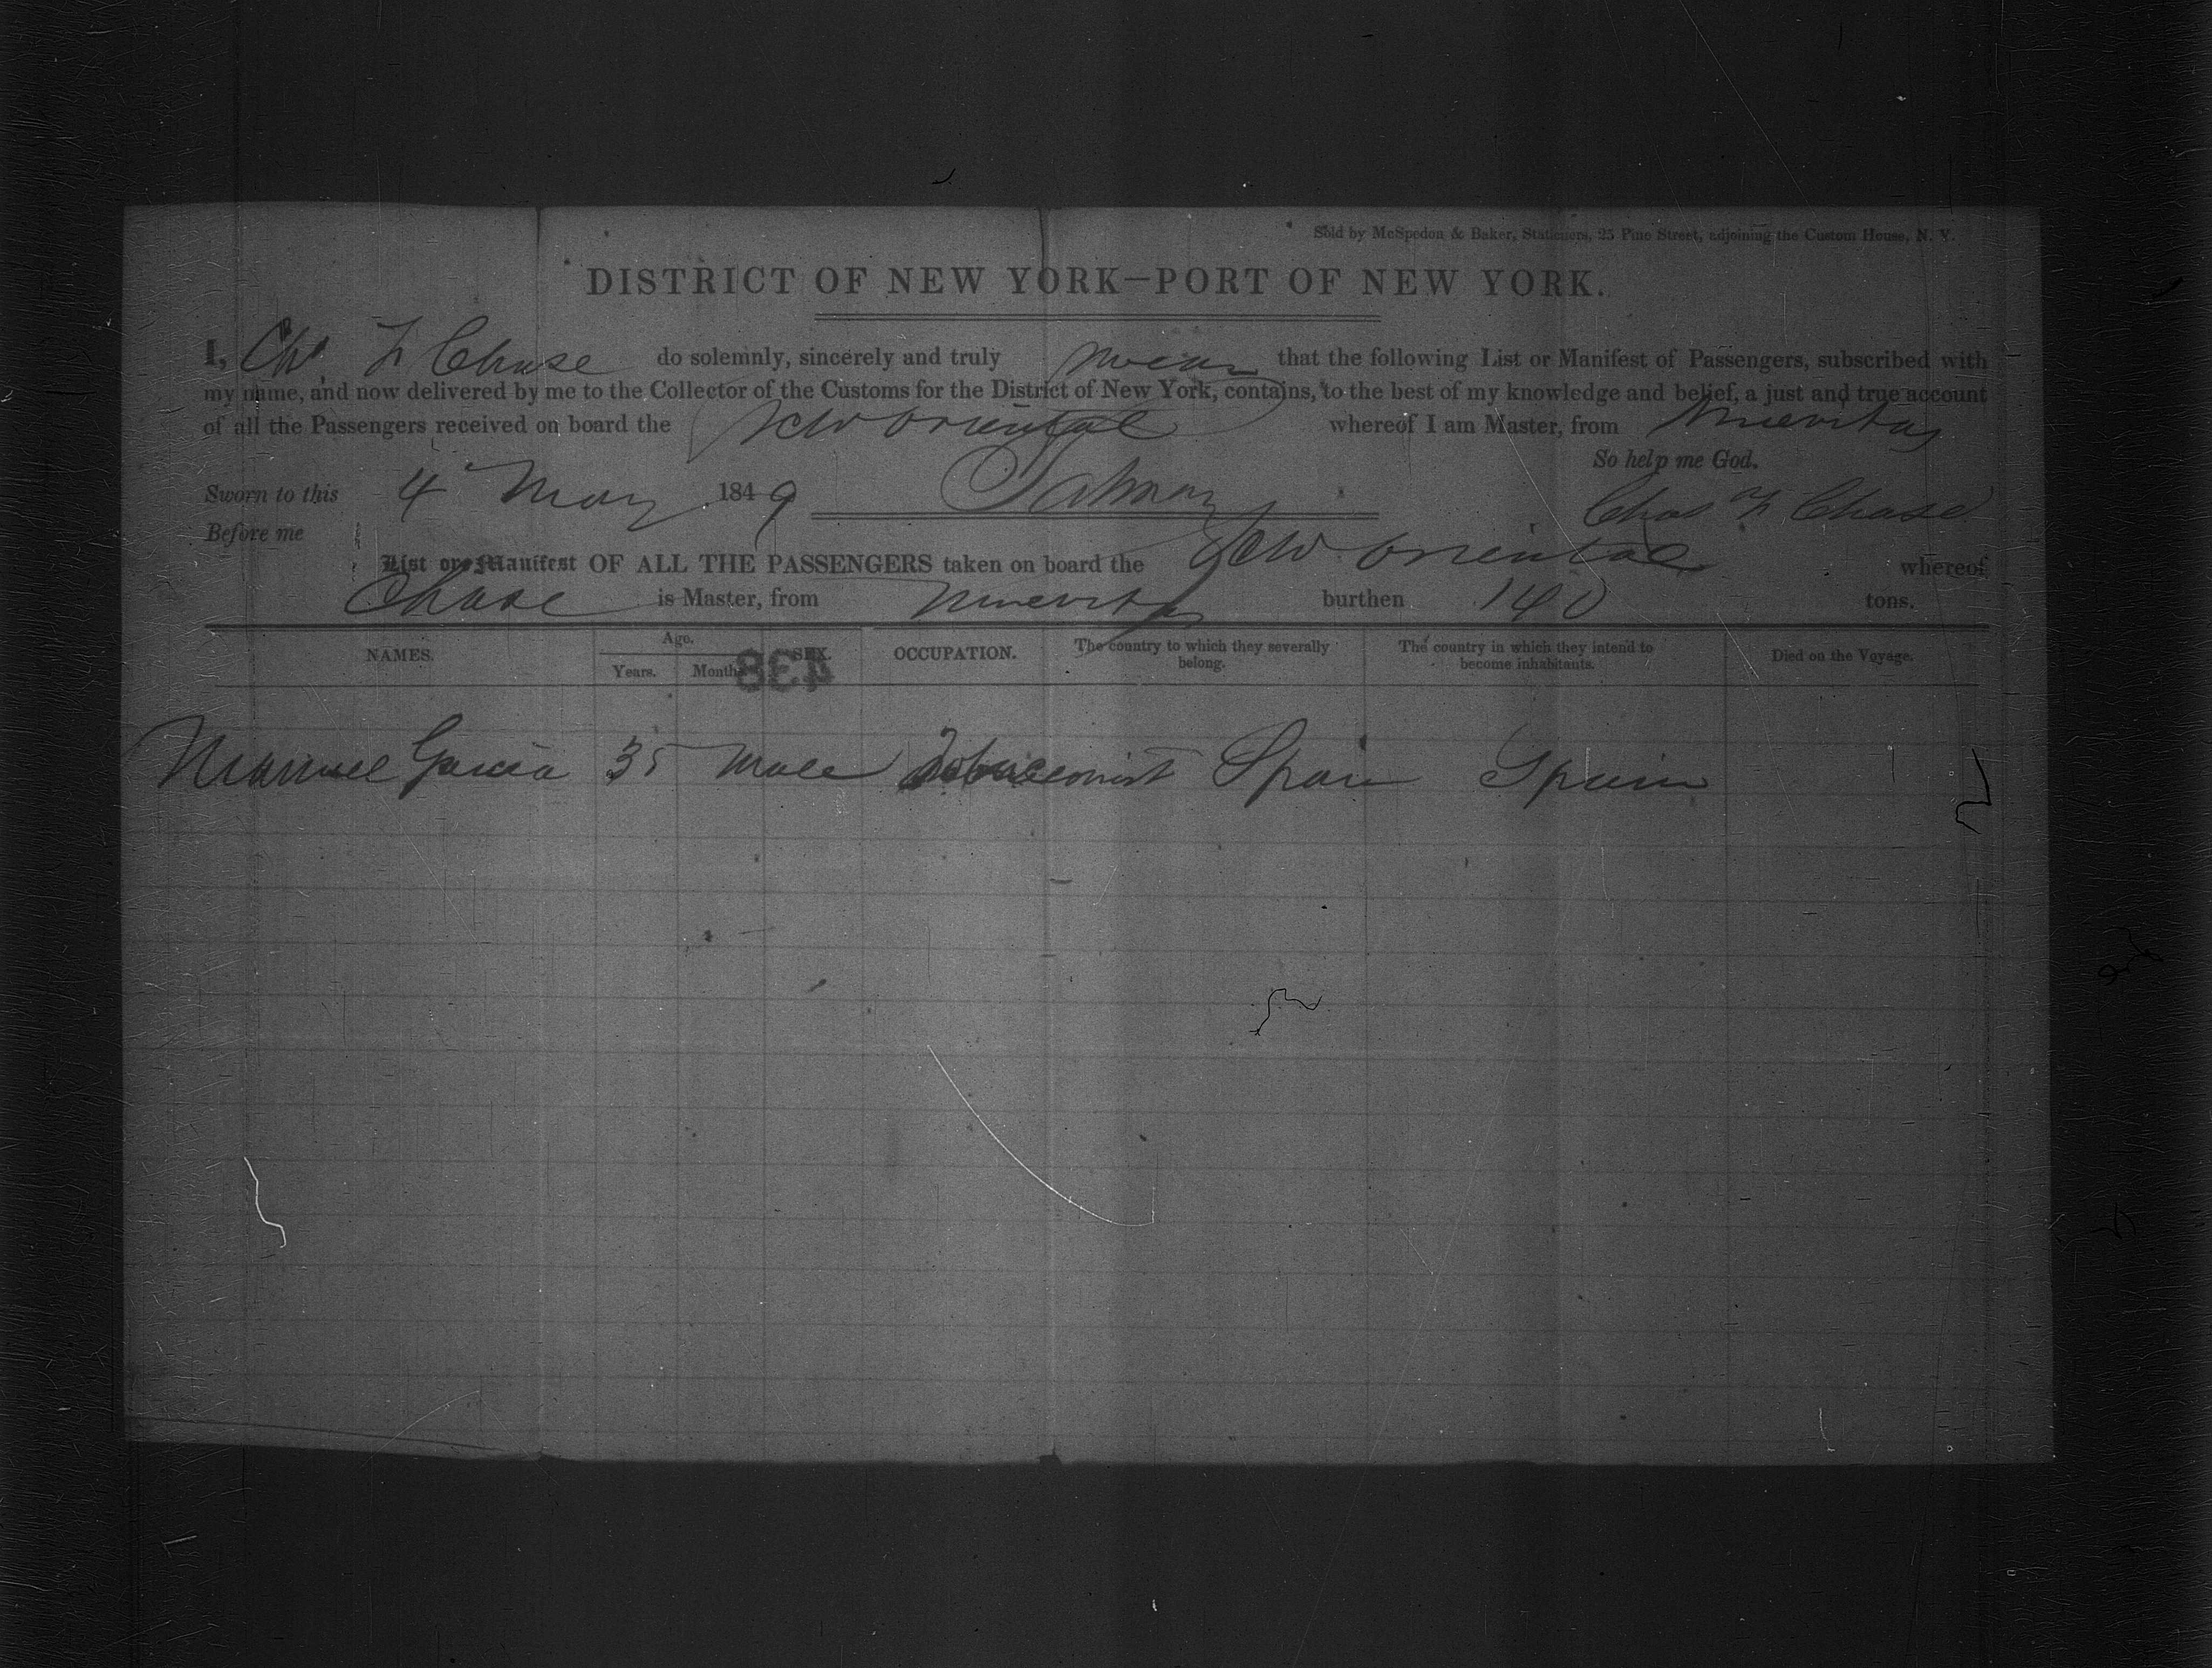 Sold by McSpedon & Baker, Stationers, 25 Pine Street, adjoining the Custom House, N. Y.
DISTRICT OF NEW YORK—PORT OF NEW YORK.
I, Chs. F Chase do solemnly, sincerely and truly swear that the following List or Manifest of Passengers, subscribed with
my name, and now delivered by me to the Collector of the Customs for the District of New York, contains, to the best of my knowledge and belief, a just and true account
of all the Passengers received on board the Sch Oriental whereof I am Master, from Nuevitas
So help me God.
Sworn to this 4 May 1849 Chas F Chase
Before me
List or Manifest OF ALL THE PASSENGERS taken on board the Sch Oriental whereof
Chase is Master, from Nuevitas burthen 140 tons.
NAMES. Age. Years. Months. SEX. OCCUPATION. The country to which they severally belong. The country in which they intend to become inhabitants. Died on the Voyage.
438
Manuel Garcia 35 Male Tobacconist Spain Spain